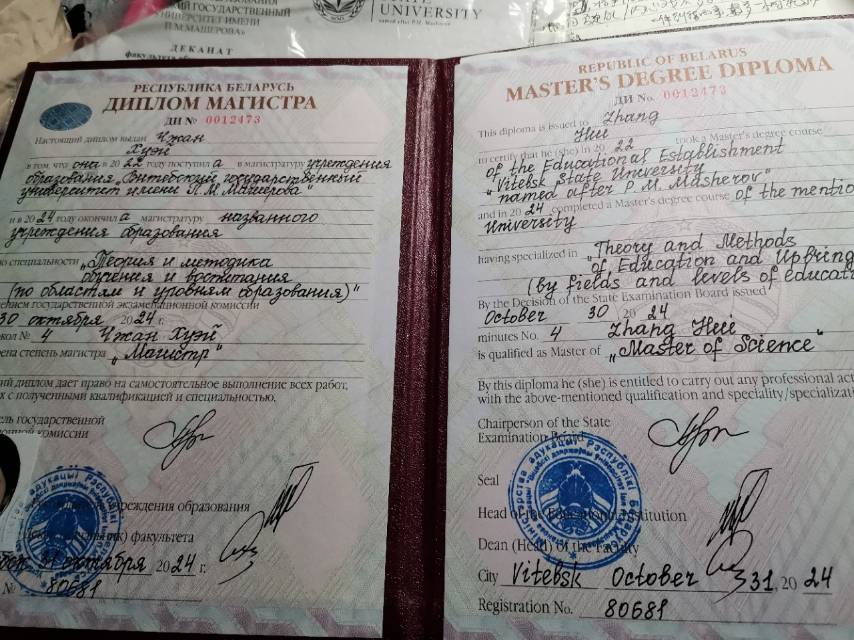 ГОСУДАРСТВЕННЫЙ
УНИВЕРСИТЕТ ИМЕНИ
П.М.МАШЕРОВА"
ДЕКАНАТ
STATE
UNIVERSITY
named after P.M. Masherov
РЕСПУБЛИКА БЕЛАРУСЬ
ДИПЛОМ МАГИСТРА
ДИ № 0012473
Настоящий диплом выдан Чжан
Хуэй
в том, что она в 2022 году поступила в магистратуру учреждения
образования „Витебский государственный
университет имени П.М. Машерова"
и в 2024 году окончила магистратуру названного
учреждения образования
по специальности „Теория и методика
обучения и воспитания
(по областям и уровням образования)"
государственной экзаменационной комиссии
30 октября 2024 г.
№ 4 Чжан Хуэй
степень магистра „Магистр"
диплом дает право на самостоятельное выполнение всех работ,
с полученными квалификацией и специальностью.
государственной
комиссии
учреждения образования
факультета
31 октября 2024 г.
№ 80681
REPUBLIC OF BELARUS
MASTER'S DEGREE DIPLOMA
ДИ No. 0012473
This diploma is issued to Zhang
Hui
to certify that he (she) in 2022 took a Master's degree course
of the Educational Establishment
„Vitebsk State University
named after P.M. Masherov"
and in 2024 completed a Master's degree course of the
University
having specialized in „Theory and Methods
of Education and
(by fields and levels of
By the Decision of the State Examination Board issued
October 30, 2024
minutes No. 4 Zhang Hui
is qualified as Master of „Master of Science"
By this diploma he (she) is entitled to carry out any professional
with the above-mentioned qualification and speciality/
Chairperson of the State
Examination Board
Seal
Head of the Educational Institution
Dean (Head) of the Faculty
City Vitebsk October 31, 2024
Registration No. 80681